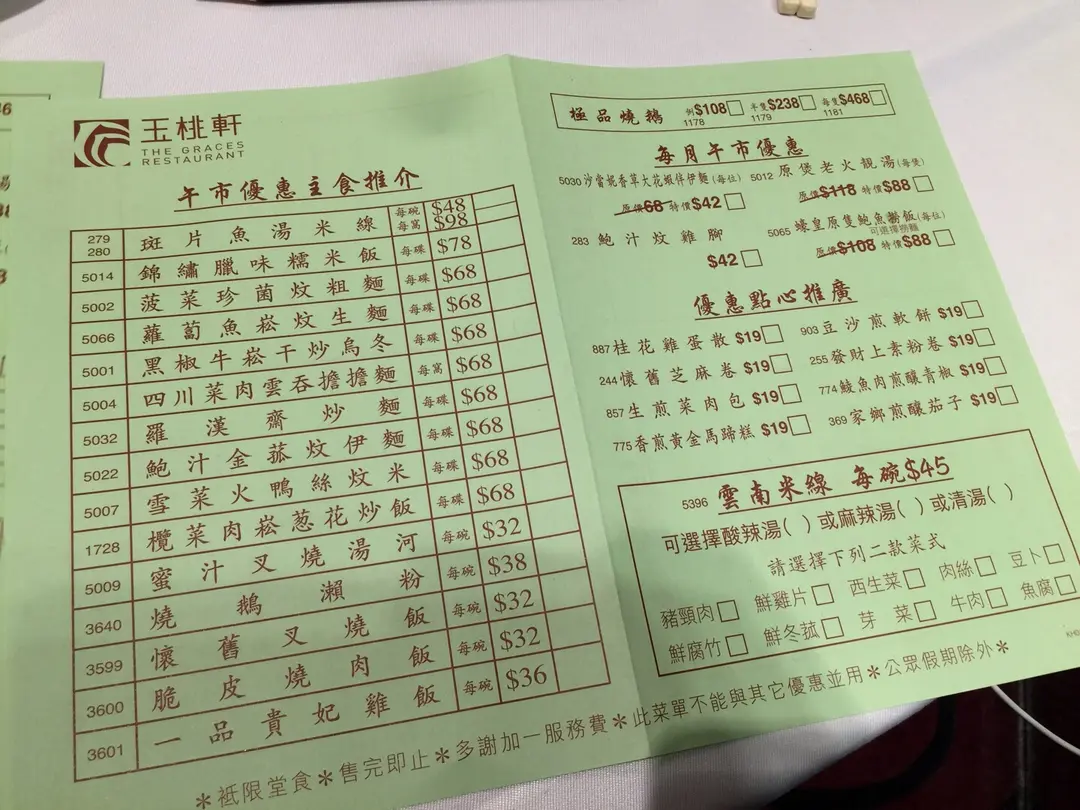 玉桃軒
THE GRACES
RESTAURANT
午市優惠主食推介
279 280 斑片魚湯米線 每碗 $48 每窩 $98
5014 錦繡臘味糯米飯 每碟 $78
5002 菠菜珍菌炆粗麵 每碟 $68
5066 蘿蔔魚崧炆生麵 每碟 $68
5001 黑椒牛崧干炒烏冬 每碟 $68
5004 四川菜肉雲吞擔擔麵 每窩 $68
5032 羅漢齋炒麵 每碟 $68
5022 鮑汁金菇炆伊麵 每碟 $68
5007 雪菜火鴨絲炆米 每碟 $68
1728 欖菜肉崧葱花炒飯 每碟 $68
5009 蜜汁叉燒湯河 每碗 $32
3640 燒鵝瀨粉 每碗 $38
3599 懷舊叉燒飯 每碗 $32
3600 脆皮燒肉飯 每碗 $32
3601 一品貴妃雞飯 每碗 $36
極品燒鵝 例$108 1178 半隻$238 1179 每隻$468 1181
每月午市優惠
5030 沙嗲妮香草大花蝦伴伊麵(每位)
原價68 特價$42
5012 原煲老火靚湯(每煲)
原價$118 特價$88
283 鮑汁炆雞腳
$42
5065 蠔皇原隻鮑魚撈飯(每位)
可選擇撈麵
原價$108 特價$88
優惠點心推廣
887 桂花雞蛋散 $19 903 豆沙煎軟餅 $19
244 懷舊芝麻卷 $19 255 發財上素粉卷 $19
857 生煎菜肉包 $19 774 鯪魚肉煎釀青椒 $19
775 香煎黃金馬蹄糕 $19 369 家鄉煎釀茄子 $19
5396 雲南米線 每碗$45
可選擇酸辣湯( )或麻辣湯( )或清湯( )
請選擇下列二款菜式
豬頸肉 鮮雞片 西生菜 肉絲 豆卜
鮮腐竹 鮮冬菰 芽菜 牛肉 魚腐
＊祗限堂食＊售完即止＊多謝加一服務費＊此菜單不能與其它優惠並用＊公眾假期除外＊